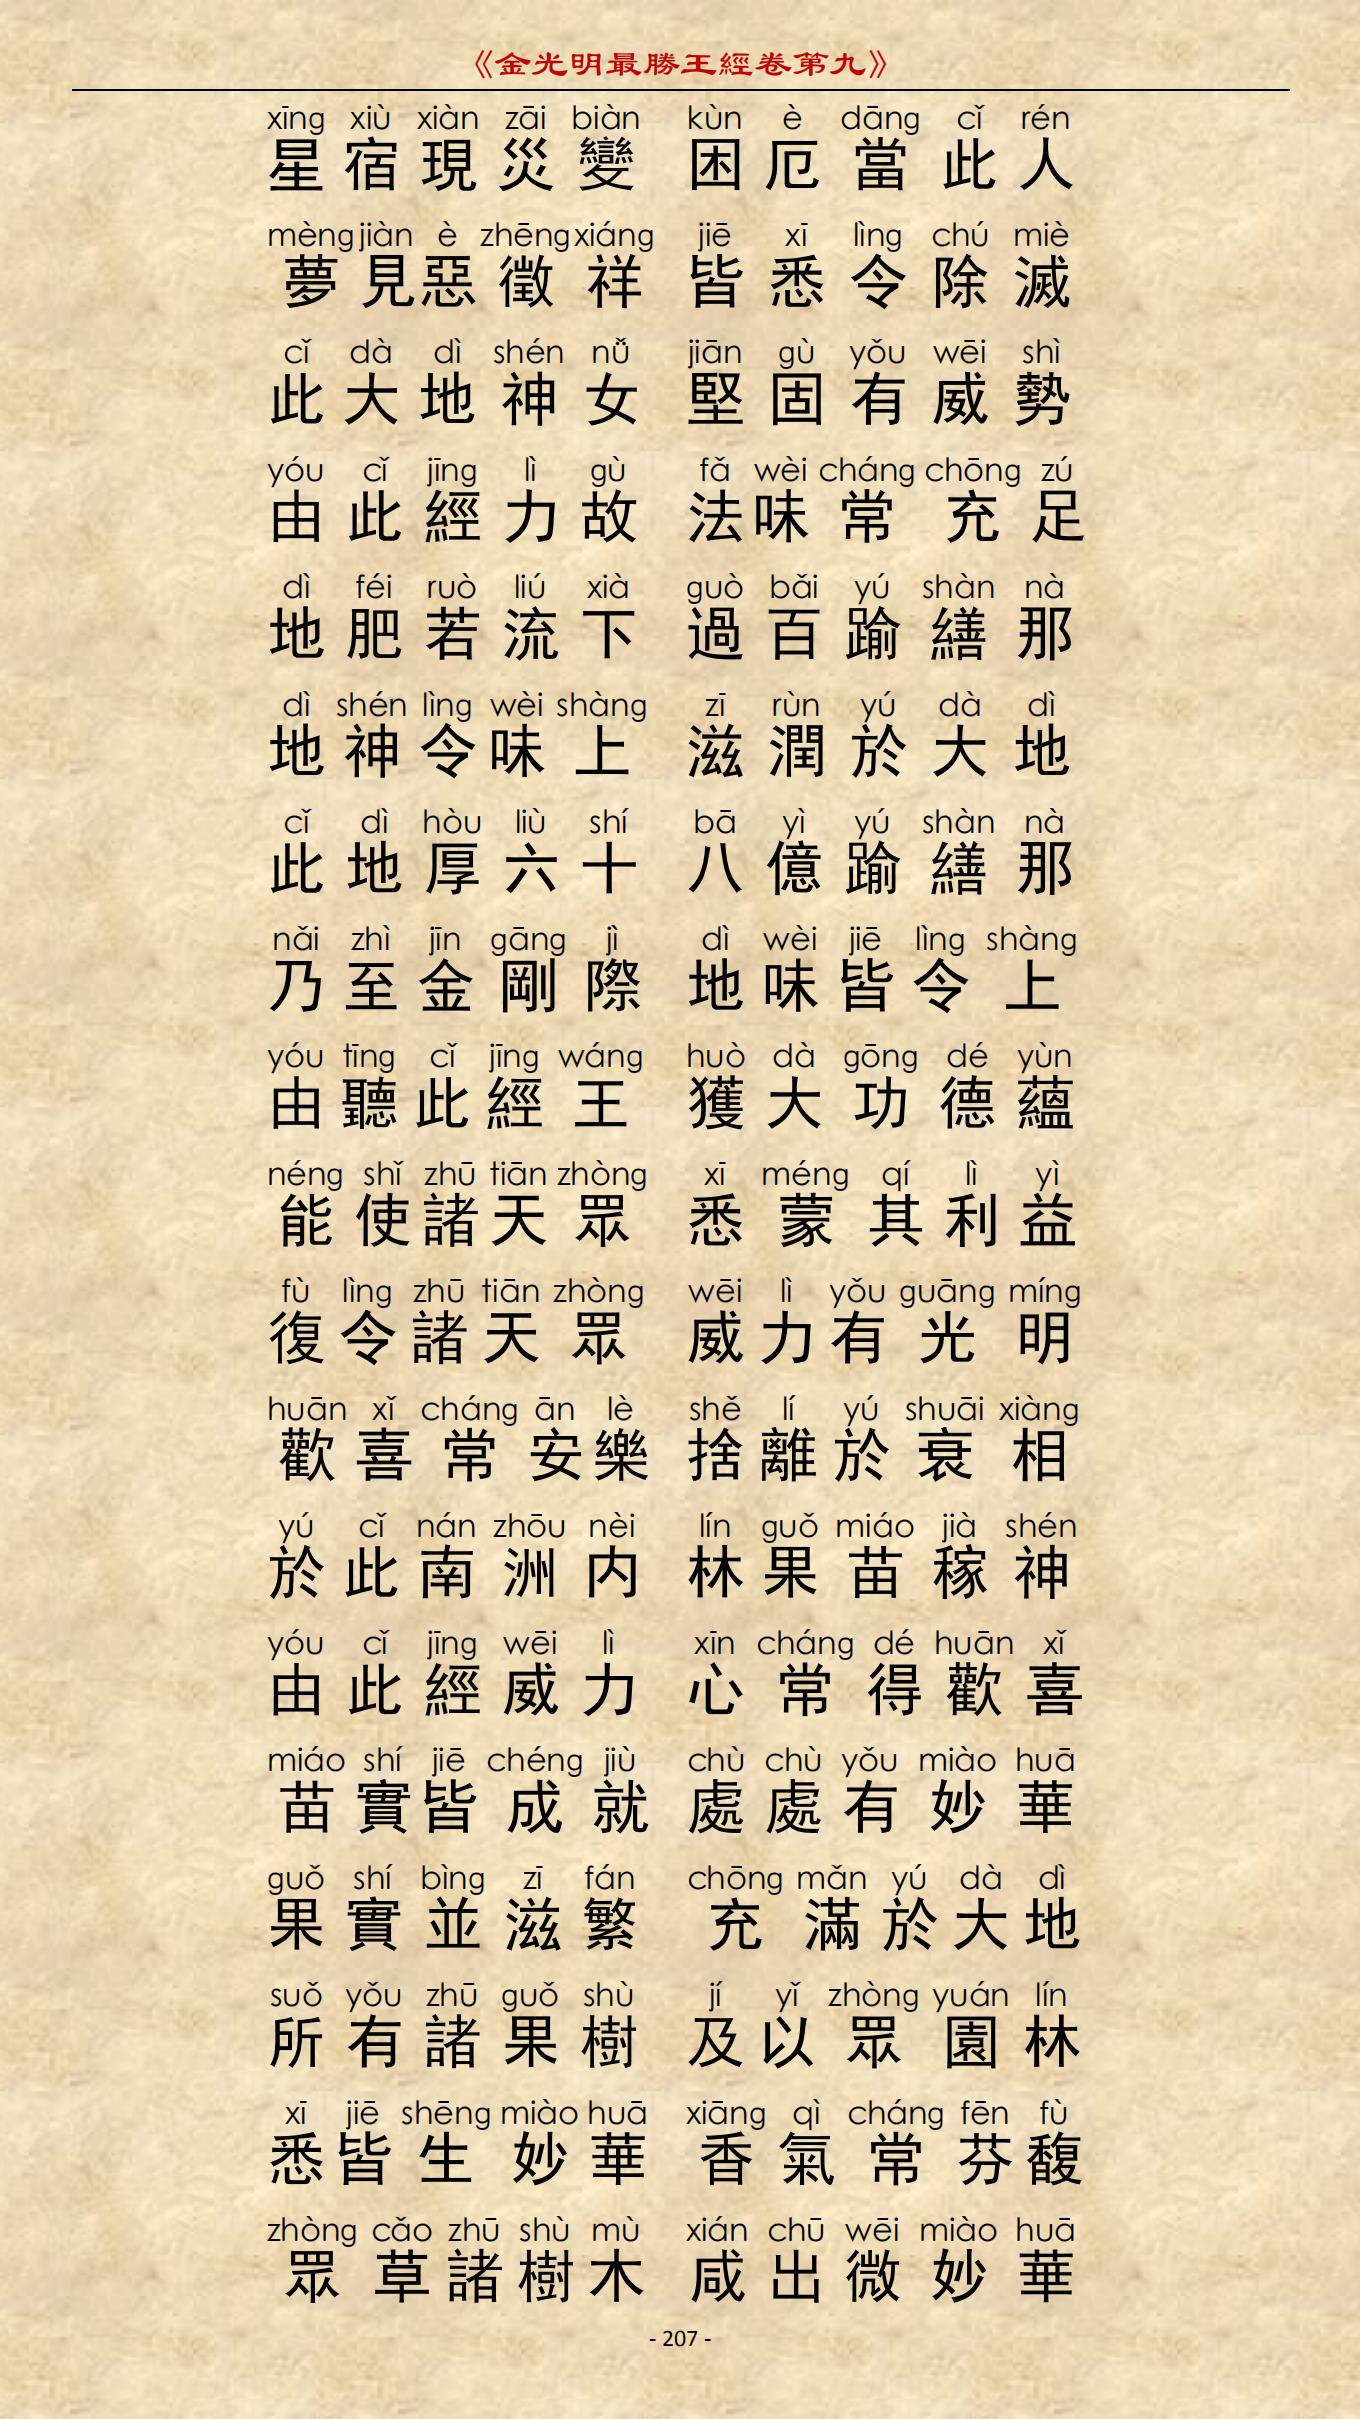 《金光明最勝王經卷第九》
xīng xiù xiàn zāi biàn kùn è dāng cǐ rén
星宿現災變 困厄當此人
mèng jiàn è zhēng xiáng jiē xī lìng chú miè
夢見惡徵祥 皆悉令除滅
cǐ dà dì shén nǚ jiān gù yǒu wēi shì
此大地神女 堅固有威勢
yóu cǐ jīng lì gù fǎ wèi cháng chōng zú
由此經力故 法味常充足
dì féi ruò liú xià guò bǎi yú shàn nà
地肥若流下 過百踰繕那
dì shén lìng wèi shàng zī rùn yú dà dì
地神令味上 滋潤於大地
cǐ dì hòu liù shí bā yì yú shàn nà
此地厚六十 八億踰繕那
nǎi zhì jīn gāng jì dì wèi jiē lìng shàng
乃至金剛際 地味皆令上
yóu tīng cǐ jīng wáng huò dà gōng dé yùn
由聽此經王 獲大功德蘊
néng shǐ zhū tiān zhòng xī méng qí lì yì
能使諸天眾 悉蒙其利益
fù lìng zhū tiān zhòng wēi lì yǒu guāng míng
復令諸天眾 威力有光明
huān xǐ cháng ān lè shě lí yú shuāi xiàng
歡喜常安樂 捨離於衰相
yú cǐ nán zhōu nèi lín guǒ miáo jià shén
於此南洲内 林果苗稼神
yóu cǐ jīng wēi lì xīn cháng dé huān xǐ
由此經威力 心常得歡喜
miáo shí jiē chéng jiù chù chù yǒu miào huā
苗實皆成就 處處有妙華
guǒ shí bìng zī fán chōng mǎn yú dà dì
果實並滋繁 充滿於大地
suǒ yǒu zhū guǒ shù jí yǐ zhòng yuán lín
所有諸果樹 及以眾園林
xī jiē shēng miào huā xiāng qì cháng fēn fù
悉皆生妙華 香氣常芬馥
zhòng cǎo zhū shù mù xián chū wēi miào huā
眾草諸樹木 咸出微妙華
- 207 -